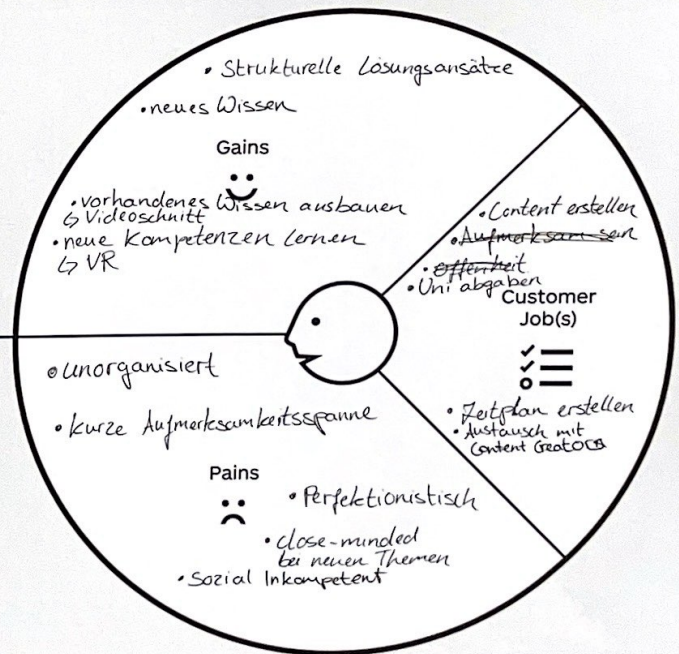 • Strukturelle Lösungsansätze
• neues Wissen
Gains
• vorhandenes Wissen ausbauen
↳ Videoschnitt
• neue Kompetenzen lernen
↳ VR
• Content erstellen
• Aufmerksam sein
• Offenheit
• Uni abgaben
Customer
Job(s)
• Zeitplan erstellen
• Austausch mit
Content Creators
• unorganisiert
• kurze Aufmerksamkeitsspanne
Pains
• Perfektionistisch
• close-minded
bei neuen Themen
• Sozial Inkompetent